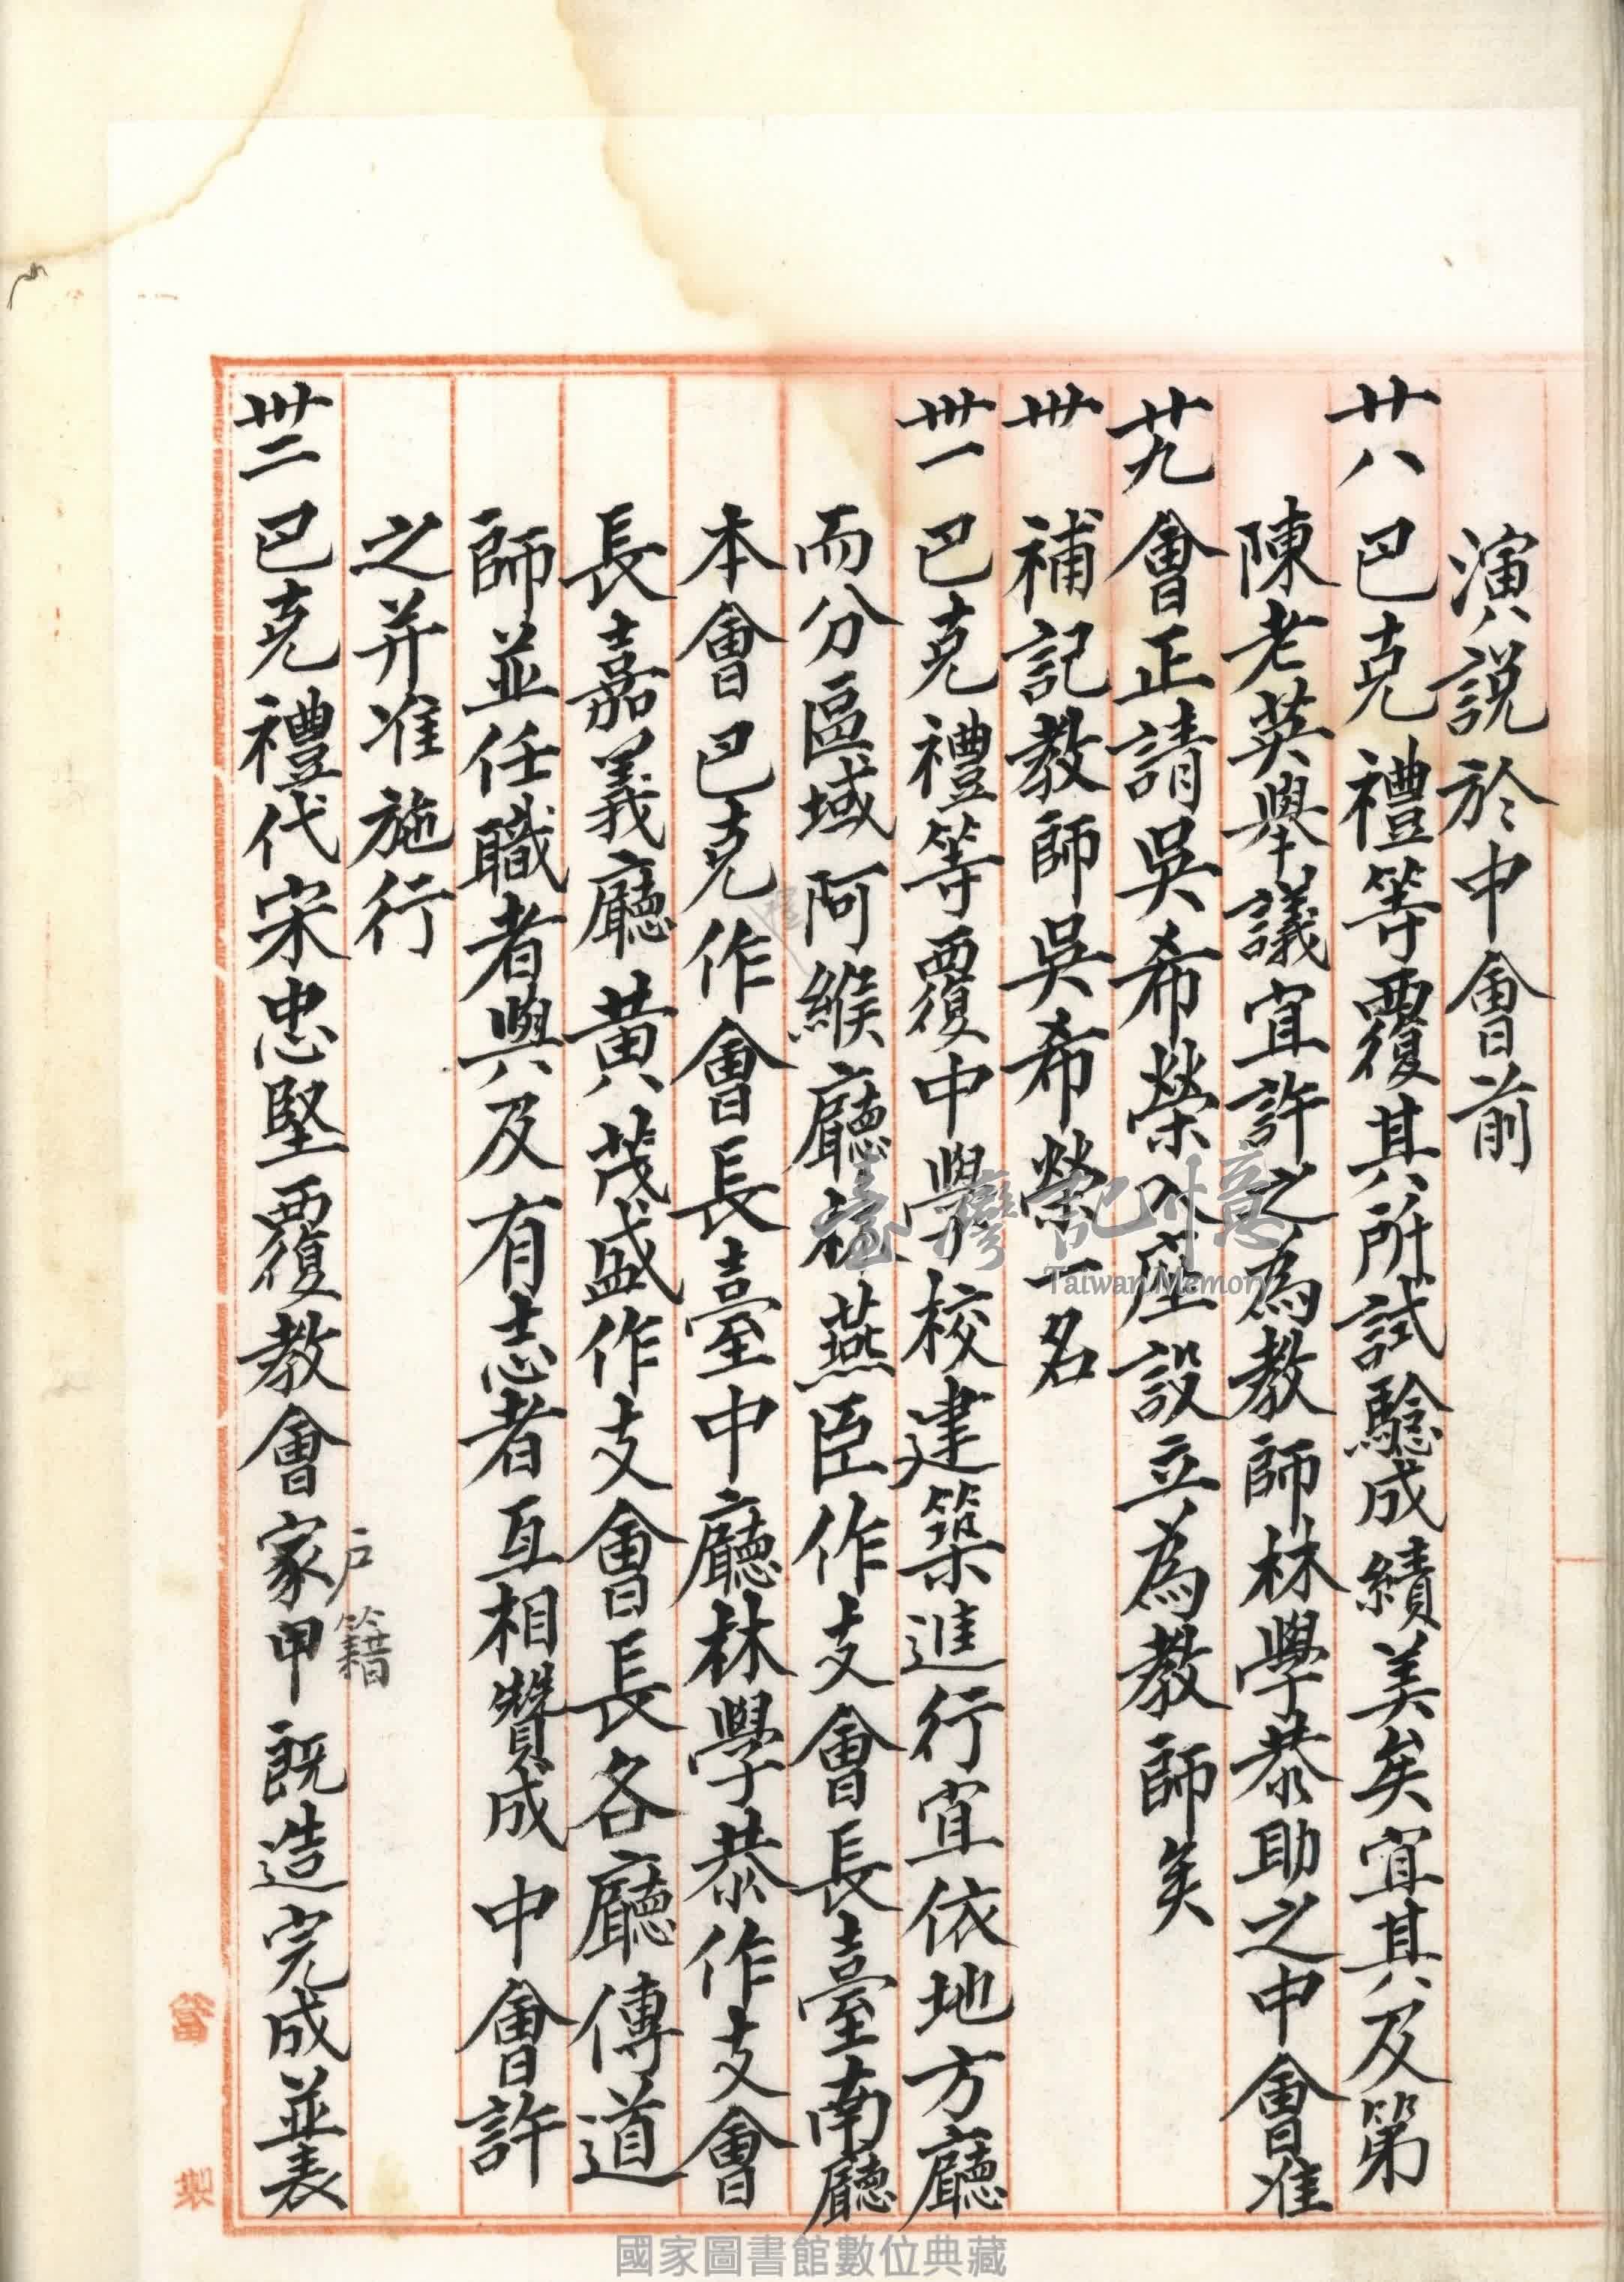 演說於中會前
廿八 巴克禮等覆其所試驗成績美矣宜其及第
陳老英舉議宜許之為教師林學恭助之中會准
廿九 會正請吳希榮入座設立為教師矣
卅 補記教師吳希榮一名
卅一 巴克禮等覆中學校建築進行宜依地方廳
而分區域阿緱廳林燕臣作支會長臺南廳
本會巴克作會長臺中廳林學恭作支會
禮
長嘉義廳黃茂盛作支會長各廳傳道
師並任職者與及有志者互相贊成中會許
之并准施行
卅二 巴克禮代宋忠堅覆教會家甲既造完成並表
戶籍
臺灣記憶
Taiwan Memory
國家圖書館數位典藏